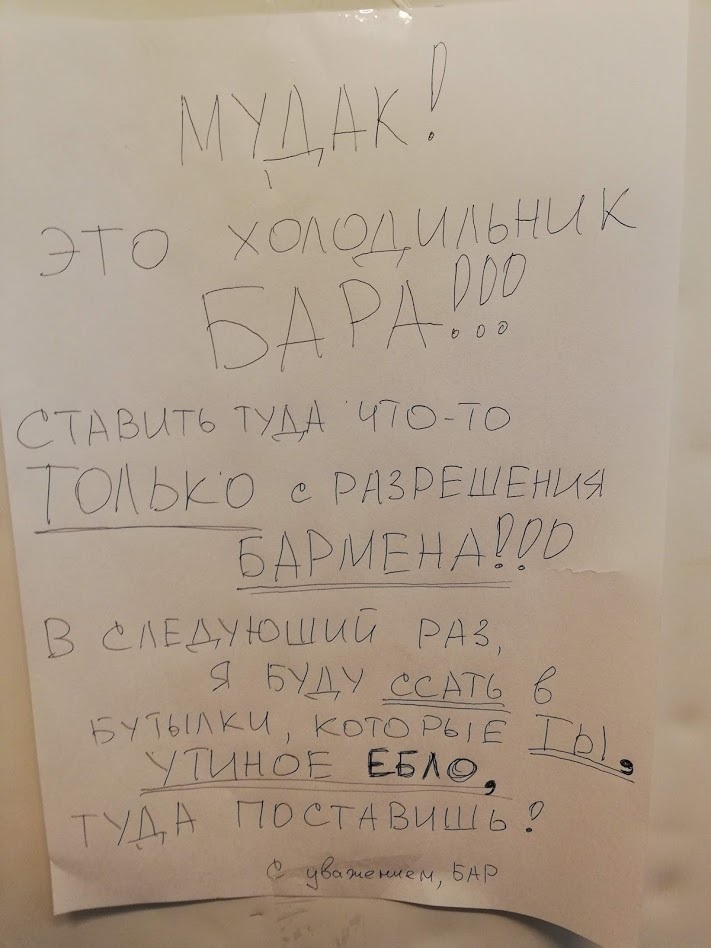 МУДАК!
ЭТО ХОЛОДИЛЬНИК
БАРА!!!
СТАВИТЬ ТУДА ЧТО-ТО
ТОЛЬКО С РАЗРЕШЕНИЯ
БАРМЕНА!!!
В СЛЕДУЮЩИЙ РАЗ,
Я БУДУ ССАТЬ В
БУТЫЛКИ, КОТОРЫЕ ТЫ,
УТИНОЕ ЕБЛО,
ТУДА ПОСТАВИШЬ!
С уважением, БАР